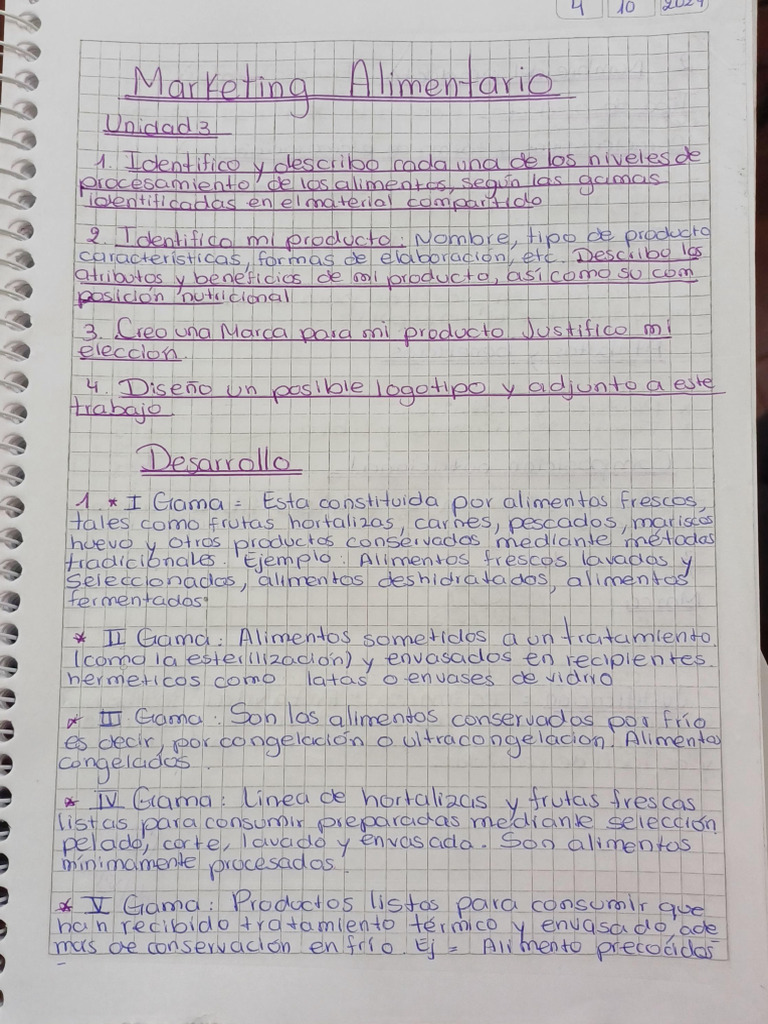 4 10 2024
Marketing Alimentario
Unidad 3
1. Identifico y describo cada una de los niveles de
procesamiento de los alimentos, según las gamas
identificadas en el material compartido
2. Identifico mi producto: Nombre, tipo de producto
características, formas de elaboración, etc. Describo los
atributos y beneficios de mi producto, así como su com
posición nutricional
3. Creo una Marca para mi producto Justifico mi
elección.
4. Diseño un posible logotipo y adjunto a este
trabajo
Desarrollo
1. * I Gama = Esta constituida por alimentos frescos,
tales como frutas hortalizas, carnes, pescados, mariscos
huevo y otros productos conservados mediante métodos
tradicionales. Ejemplo: Alimentos frescos lavados y
seleccionados, alimentos deshidratados, alimentos
fermentados.
* II Gama: Alimentos sometidos a un tratamiento
(como la esterilización) y envasados en recipientes
hermeticos como latas o envases de vidrio
* III Gama: Son los alimentos conservados por frío
es decir, por congelación o ultracongelacion. Alimentos
congelados.
* IV Gama: Linea de hortalizas y frutas frescas
listas para consumir preparadas mediante selección
pelado, corte, lavado y envasada. Son alimentos
mínimamente procesados.
* V Gama: Productos listos para consumir que
han recibido tratamiento térmico y envasado, ade
mas de conservación en frío. Ej = Alimento precocidos